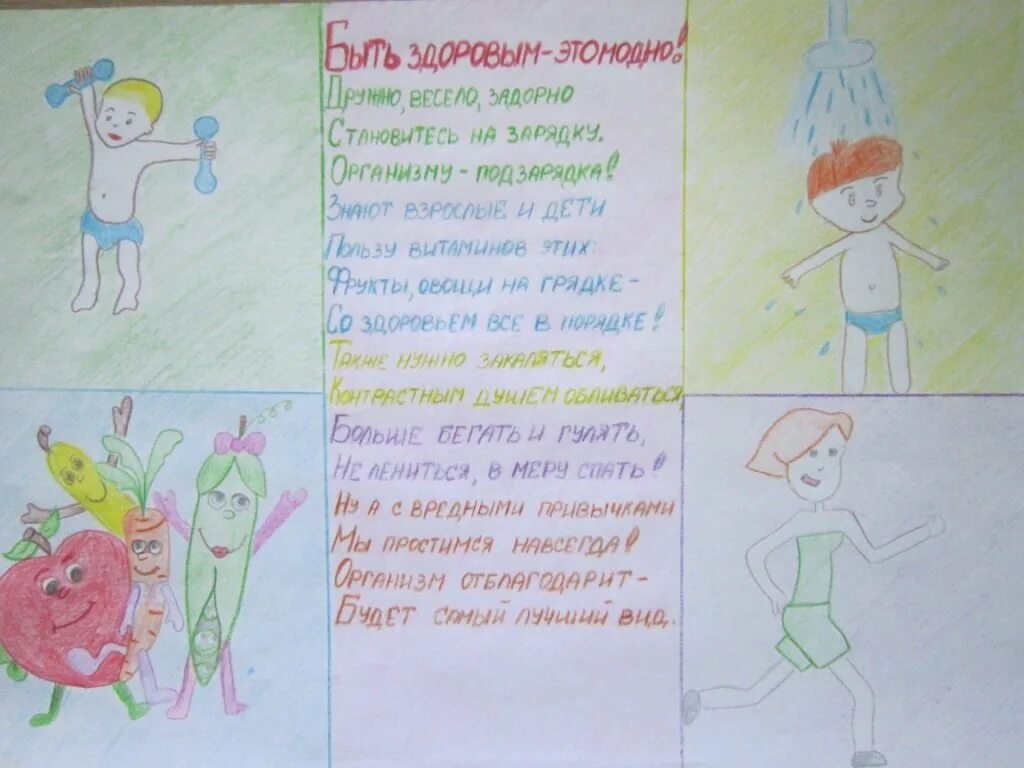 Быть здоровым-это модно!
Дружно, весело, задорно
Становитесь на зарядку.
Организму - подзарядка!
Знают взрослые и дети
Пользу витаминов этих:
Фрукты, овощи на грядке -
Со здоровьем все в порядке!
Также нужно закаляться,
Контрастным душем обливаться,
Больше бегать и гулять,
Не лениться, в меру спать!
Ну а с вредными привычками
Мы простимся навсегда!
Организм отблагодарит-
Будет самый лучший вид.